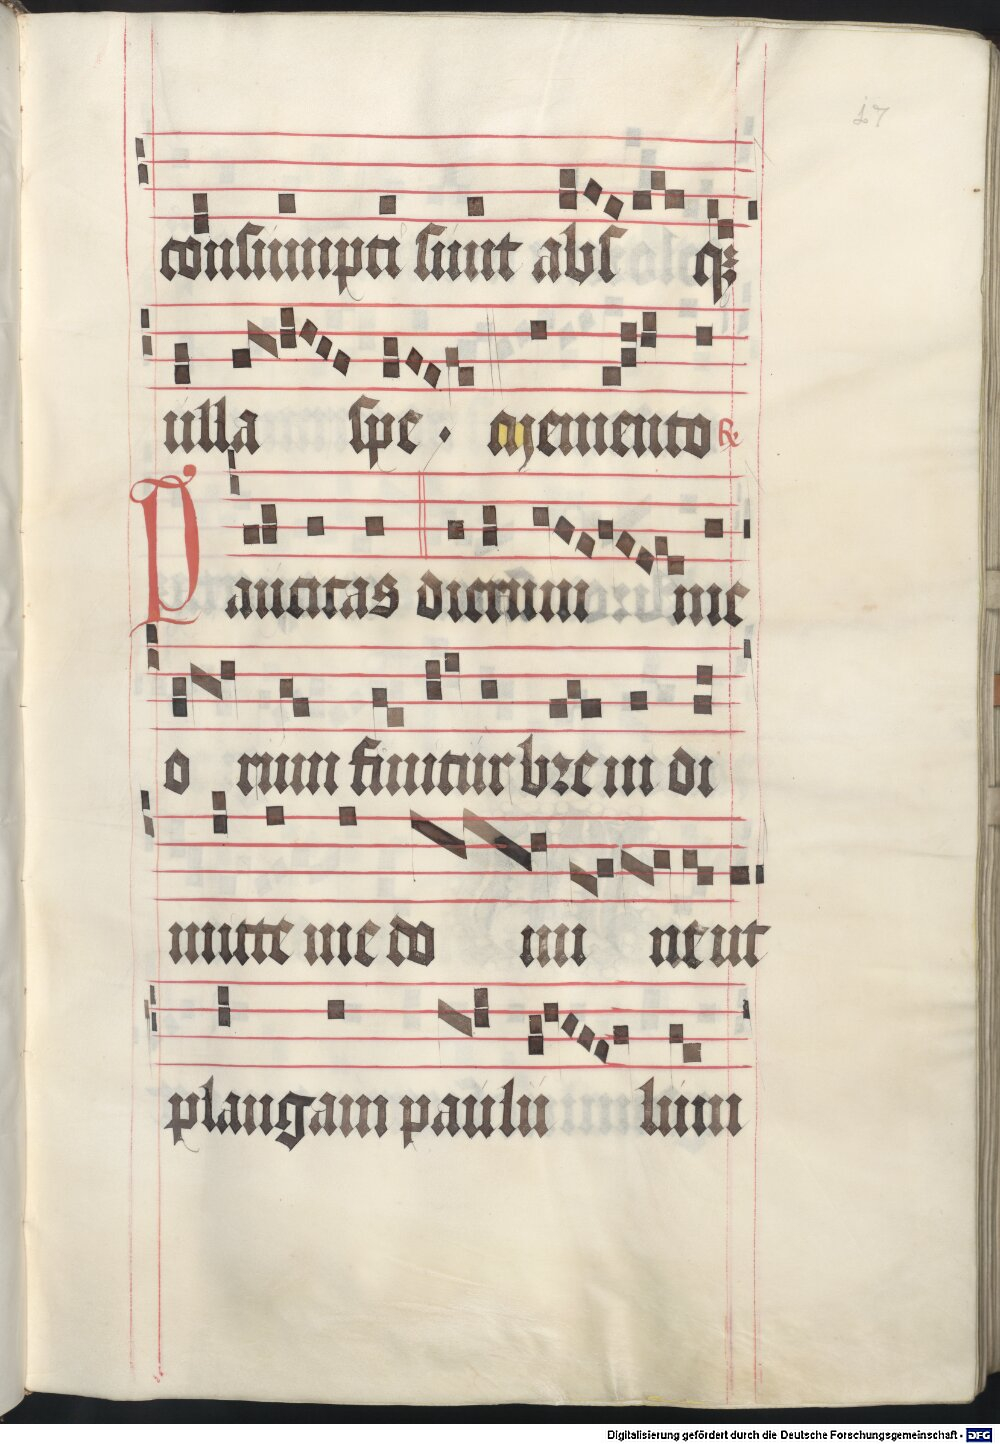 17
consumpti sunt absqꝫ
ulla spe. Memento ℟
Paucitas dierum me
orum finitur breui di
mitte me domine ut
plangam paululum
Digitalisierung gefördert durch die Deutsche Forschungsgemeinschaft - DFG